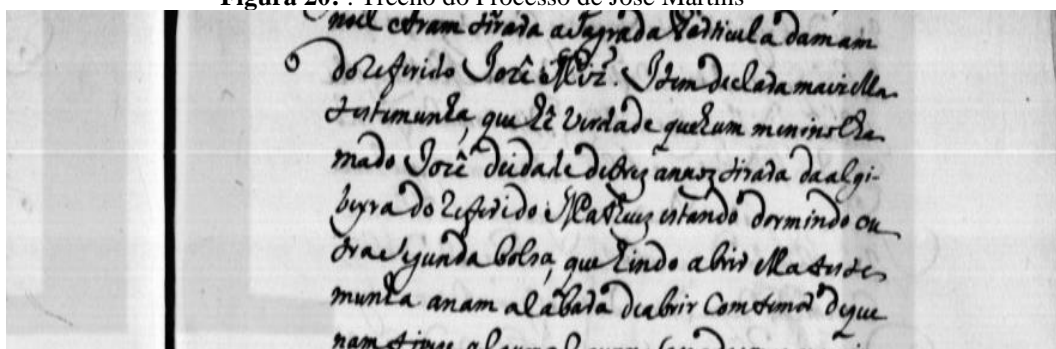 Figura 20: : Trecho do Processo de José Martins
noel e tiram tirada a sagrada Particula da mam
do referido Jozê Miz. Item declara mais ella
testimunha, que hê verdade que hum menino cha
mado Jozê de idade de tres annos tirada da algi-
beyra do referido Matheus estando dormindo ou
tra segunda bolsa, que hindo abrir ella testi
munha a nam acabara de abrir com temor de que
nam